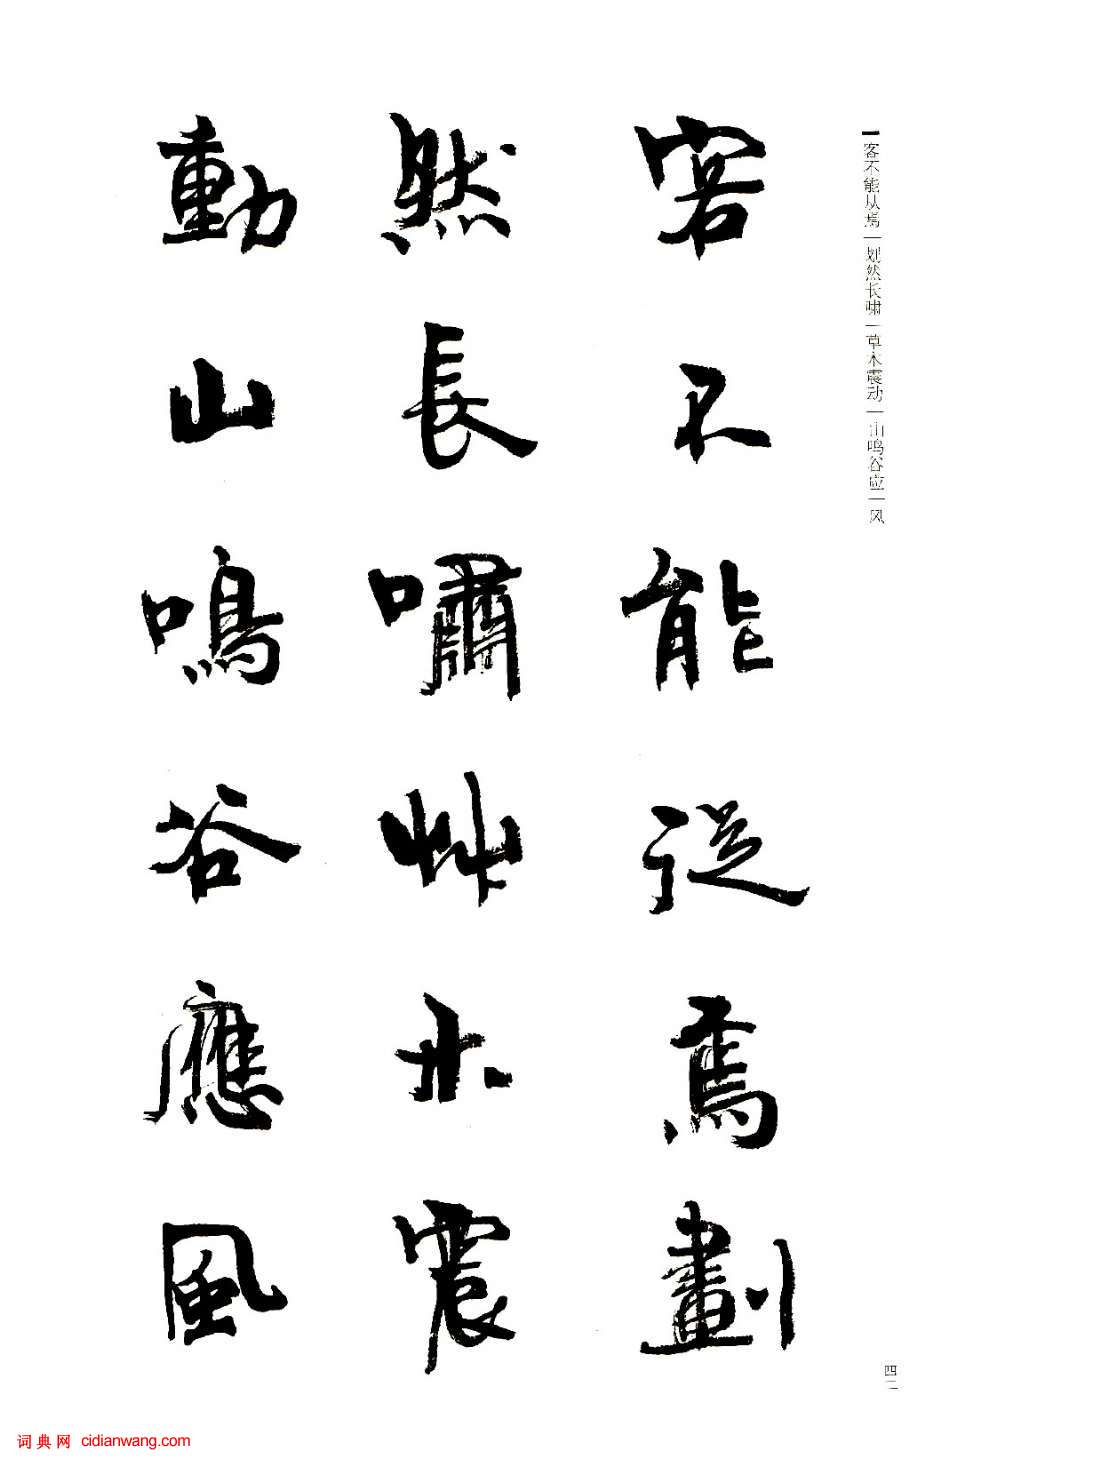 客不能从焉|划然长啸|草木震动|山鸣谷应|风
客不能從焉劃
然長嘯艸木震
動山鳴谷應風
四二
词典网 cidianwang.com